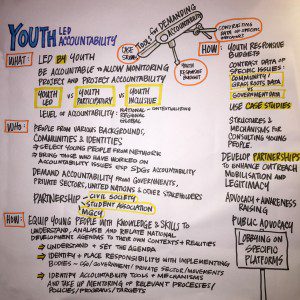 YOUTH LED
ACCOUNTABILITY
TOOLS for DEMANDING
ACCOUNTABILITY
USE
CONTRASTING
DATA OF
SPECIFIC
YOUTH
RESPONSIVE
BUDGET
WHAT:
LED BY YOUTH
BE ACCOUNTABLE → ALLOW MONITORING
PROJECT AND PROJECT ACCOUNTABILITY
YOUTH LED VS YOUTH PARTICIPATORY VS YOUTH INCLUSIVE
LEVEL OF ACCOUNTABILITY:
NATIONAL → CONTEXTUALIZING
REGIONAL
GLOBAL
WHO:
PEOPLE FROM VARIOUS BACKGROUNDS,
COMMUNITIES & IDENTITIES
→ SELECT YOUNG PEOPLE FROM NETWORK
→ BRING THOSE WHO HAVE WORKED ON
ACCOUNTABILITY ISSUES & SDGs ACCOUNTABILITY
DEMAND ACCOUNTABILITY FROM GOVERNMENTS,
PRIVATE SECTORS, UNITED NATIONS & OTHER STAKEHOLDERS
PARTNERSHIP
CIVIL SOCIETY
STUDENT ASSOCIATION
MGCY
HOW:
EQUIP YOUNG PEOPLE WITH KNOWLEDGE & SKILLS TO
UNDERSTAND, ANALYSE AND RELATE NATIONAL
DEVELOPMENT AGENDAS TO THEIR OWN CONTEXTS & REALITIES
→ UNDERSTAND & SET THE AGENDA
→ IDENTIFY & PLACE RESPONSIBILITY WITH IMPLEMENTING
BODIES - GOVERNMENT/PRIVATE SECTOR/MOVEMENTS
→ IDENTIFY ACCOUNTABILITY TOOLS & MECHANISMS
AND TAKE UP MENTORING OF RELEVANT PROCESSES/
POLICIES/PROGRAMS/TARGETS
HOW:
YOUTH RESPONSIVE
BUDGETS
CONTRAST DATA OF
SPECIFIC ISSUES:
COMMUNITY/
GRASS ROOTS DATA
VS
GOVERNMENT DATA
USE CASE STUDIES
STRUCTURES &
MECHANISMS FOR
CONSULTING
YOUNG PEOPLE.
DEVELOP PARTNERSHIPS
TO ENHANCE OUTREACH
MOBILISATION AND
LEGITIMACY
ADVOCACY + AWARENESS
RAISING
PUBLIC ADVOCACY
LOBBYING ON
SPECIFIC
PLATFORMS